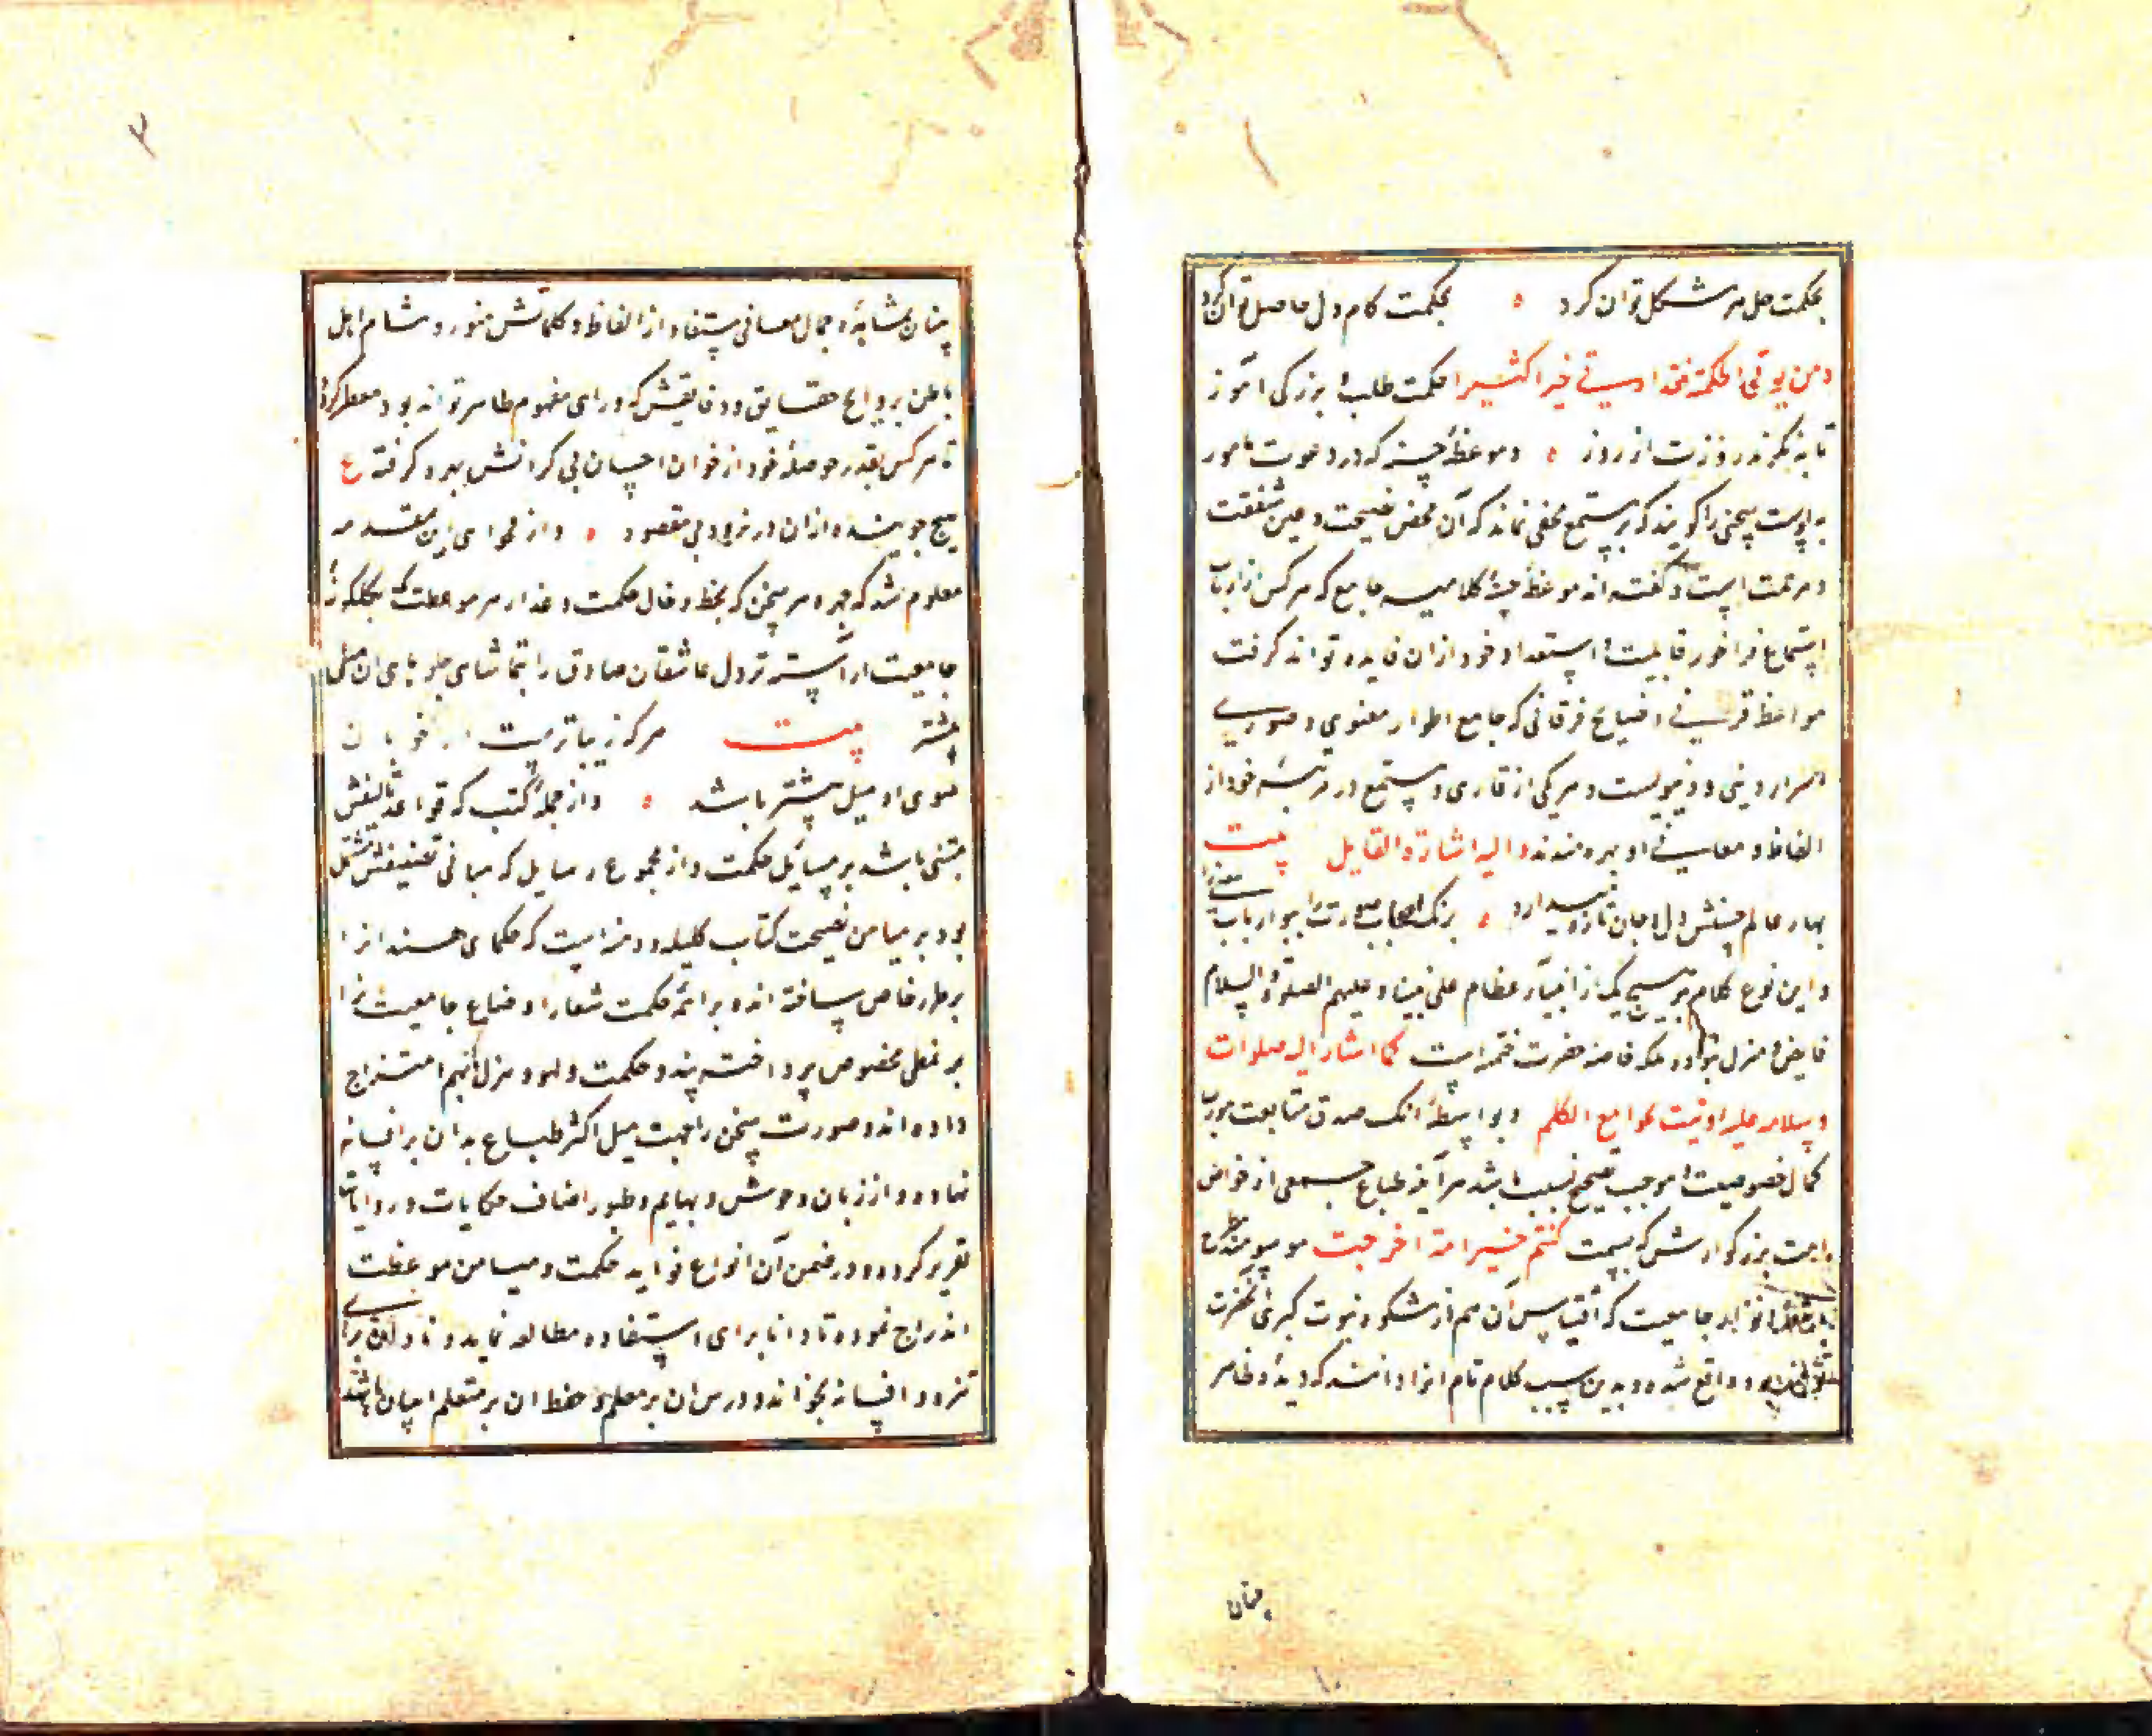 بحکمت حل هر مشکل توان کرد ه بحکمت کام دل حاصل توان کرد
ومن یوتی الحکمة فقد اوتی خیرا کثیرا حکمت طلب و بزرکی آموز
تا به نکرند روزت از روز ه و موعظه حسنه که در دعوت مامور
به اوست سخنی را کویند که بر مستمع مخفی نماند که آن محض نصیحت و عین شفقت
و مرحمت است و کفته اند موعظه حسنه کلامیست جامع که هر کس از ارباب
استماع فراخور قابلیت و استعداد خود ازان فایده تواند کرفت
مواعظ قرآنی و نصایح فرقانی که جامع اطوار معنوی و صوری
اسرار دینی و دنیویست و هر یکی از قاری و مستمع در مرتبه خود از
الفاظ و معانی او بهره مندند والیه اشارة القایل بیت
بهار عالم حسنش دل و جان تازه میدارد ه برنک اصحاب صورت را ببو ارباب معنی را
و این نوع کلام بر هیچ یک از انبیاء عظام علی نبینا و علیهم الصلوة والسلام
فایض و منزل نبوده بلکه خاصه حضرت ختمیست کما اشار الیه صلوات
وسلامه علیه اوتیت بجوامع الکلم و بواسطه آنک صدق متابعت مورث
کمال خصوصیت و موجب تصحیح نسبت باشد هر آینه طباع جمعی از خواص
امت بزرکوارش که بسمت کنتم خیر امة اخرجت موسومند مطرح
انوار جامعیت که اقتباس آن هم از مشکوة نبوت کبری آنحضرت
تواند بود واقع شده و بدین سبب کلام تام انرا دانند که دیده ظاهر
چنان
۳
بینان بمشاهده جمال معانی مستفاد از الفاظ و کلماتش منور و مشام اهل
باطن بروایح حقایق و دقایقش که ورای مفهوم ظاهر تواند بود معطر کردد
تا هر کس بقدر حوصله خود از خوان احسان بی کرانش بهره کرفته ع
هیچ جوینده ازان در نرود بی مقصود ه و از فحوای این مقدمه
معلوم شد که چهره هر سخن که بخط و خال حکمت و عذار هر موعظت که بکلکونه
جامعیت آراسته تر دل عاشقان صادق را بتماشای جلوهای ان میل
بیشتر بیت هر که زیباترست از خوبان
سوی او میل بیشتر باشد ه و از جمله کتب که قواعد تالیفش
مبتنی باشد بر مسایل حکمت و از مجموع رسایل که مبانی تصنیفش مشتمل
بود بر میامن نصیحت کتاب کلیله و دمنه است که حکمای هند انرا
بر طرز خاص ساخته اند و براهمه حکمت شعار اوضاع جامعیت را
بر نمطی مخصوص پرداخته پند و حکمت و لهو و هزل بهم امتزاج
داده اند و صورت سخن را بجهت میل اکثر طباع بدان بر افسانه
نهاده و از زبان وحوش و بهایم و طیور اصناف حکایات و روایات
تقریر کرده و در ضمن آن انواع فواید حکمت و میامن موعظت
اندراج نموده تا دانا برای استفاده مطالعه نماید و نادان برای
تزود افسانه بخواند و درس ان بر معلم و حفظ ان بر متعلم اسان باشد